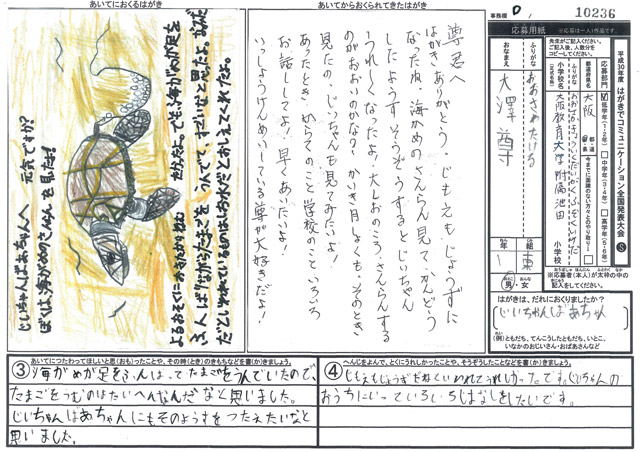 あいてにおくるはがき
じいちゃんばあちゃんへ 元気ですか?
ぼくは、海がめのさんらんを見たよ!
よるおそくに
ふんばりながらたまごを、うんで、
あいてからおくられてきたはがき
尊君へ
はがき、ありがとう。じもえもじょうずに
なったね。海がめのさんらん見て、かんどう
したようす、そうぞうするとじいちゃん
うれしくなったよ。大しおのころ、さんらんする
のがおおいのかな?かいき月しょくも、そのとき
見たの、じいちゃんも見てみたいよ!
あったとき、からてのこと学校のこといろいろ
お話してよ!早くあいたいよ!
いっしょうけんめいしている尊が大好きだよ!
事務欄
10236
平成30年度 はがきでコミュニケーション全国発表大会
応募用紙
※応募は一人1作品です。
先生がご記入ください。
ご記入後、人数分を
コピーしてください。
応募部門
低学年(1・2年)
中学年(3・4年)
高学年(5・6年)
都道府県名
大阪
都・道
府・県
小学校名
(正式名称)
大阪教育大学附属池田
小学校
ふりがな
おおさわたける
おなまえ
大澤 尊
年
1
組
東
男・女
※応募者(本人)が太枠の中の
記入をしてください。
はがきは、だれにおくりましたか?
じいちゃんばあちゃん
(例)ともだち、てんこうしたともだち、いとこ、
いなかのおじいさん・おばあさんなど
あいてにつたわってほしいと思(おも)ったことや、その時(とき)のきもちなどを書(か)きましょう。
③海がめが足をふんばってたまごをうんでいたので、
たまごをうむのはたいへんなんだなと思いました。
じいちゃんばあちゃんにもそのようすをつたえたいなと
思いました。
へんじをよんで、とくにうれしかったことや、そうぞうしたことなどを書(か)きましょう。
④じもえもじょうずだねといわれてうれしかったです。じいちゃんの
おうちにいっていろいろはなしをしたいです。